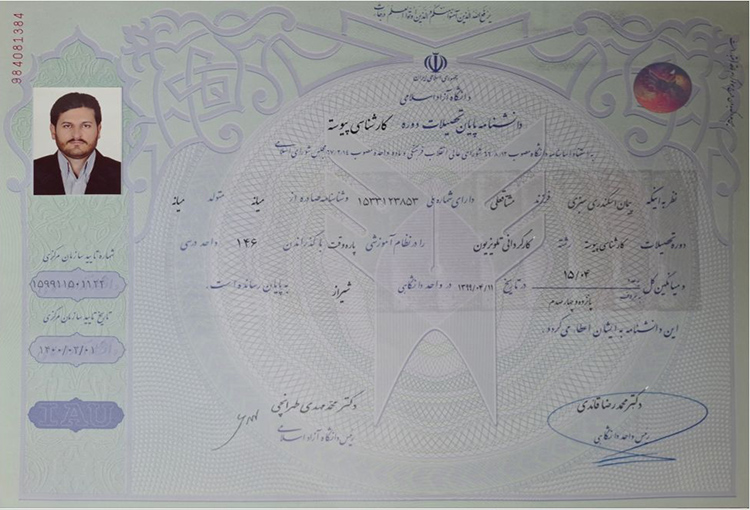 یرفع الله الذین آمنوا منکم والذین اوتوا العلم درجات
984081384
جمهوری اسلامی ایران
دانشگاه آزاد اسلامی
دانشنامه پایان تحصیلات دوره کارشناسی پیوسته
نظر به اینکه پیمان اسکندری سبزی فرزند مشاقعلی دارای شماره ملی ۱۵۳۳۱۲۳۸۵۳ و شناسنامه صادره از میانه متولد میانه
دوره تحصیلات کارشناسی پیوسته رشته کارگردانی تلویزیون را در نظام آموزشی پاره‌وقت با گذراندن ۱۴۶ واحد درسی
و میانگین کل ۱۵/۰۴ پانزده و چهار صدم در تاریخ ۱۳۹۹/۰۴/۱۱ در واحد دانشگاهی شیراز به پایان رسانده است.
این دانشنامه به ایشان اعطا می‌گردد.
شماره تایید سازمان مرکزی
۱۵۹۹۱۱۵۰۱۱۲۲
تاریخ تایید سازمان مرکزی
۱۴۰۰/۰۲/۰۱
IAU
دکتر محمدرضا قائدی
رئیس واحد دانشگاهی
دکتر محمد مهدی طهرانچی
رئیس دانشگاه آزاد اسلامی